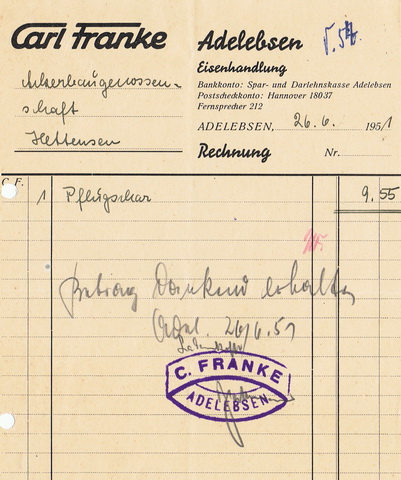 Carl Franke
Adelebsen
Eisenhandlung
Bankkonto: Spar- und Darlehnskasse Adelebsen
Postscheckkonto: Hannover 18037
Fernsprecher 212
Ackerbaugenossen-
schaft
Hettensen
ADELEBSEN, 26.6. 1951
Rechnung Nr.
C. F.
1 Pflugschar 9.55
Betrag dankend erhalten
Adel. 26/6.51
C. FRANKE
ADELEBSEN